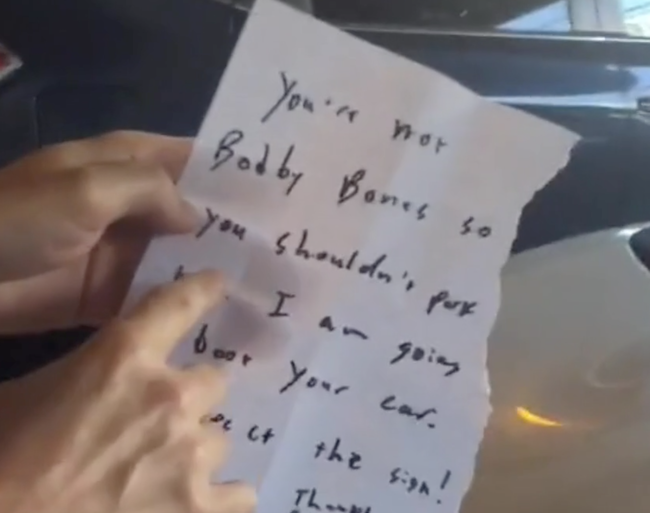 You're not
Bobby Bones so
you shouldn't park
I am going
boot your car.
the sign!